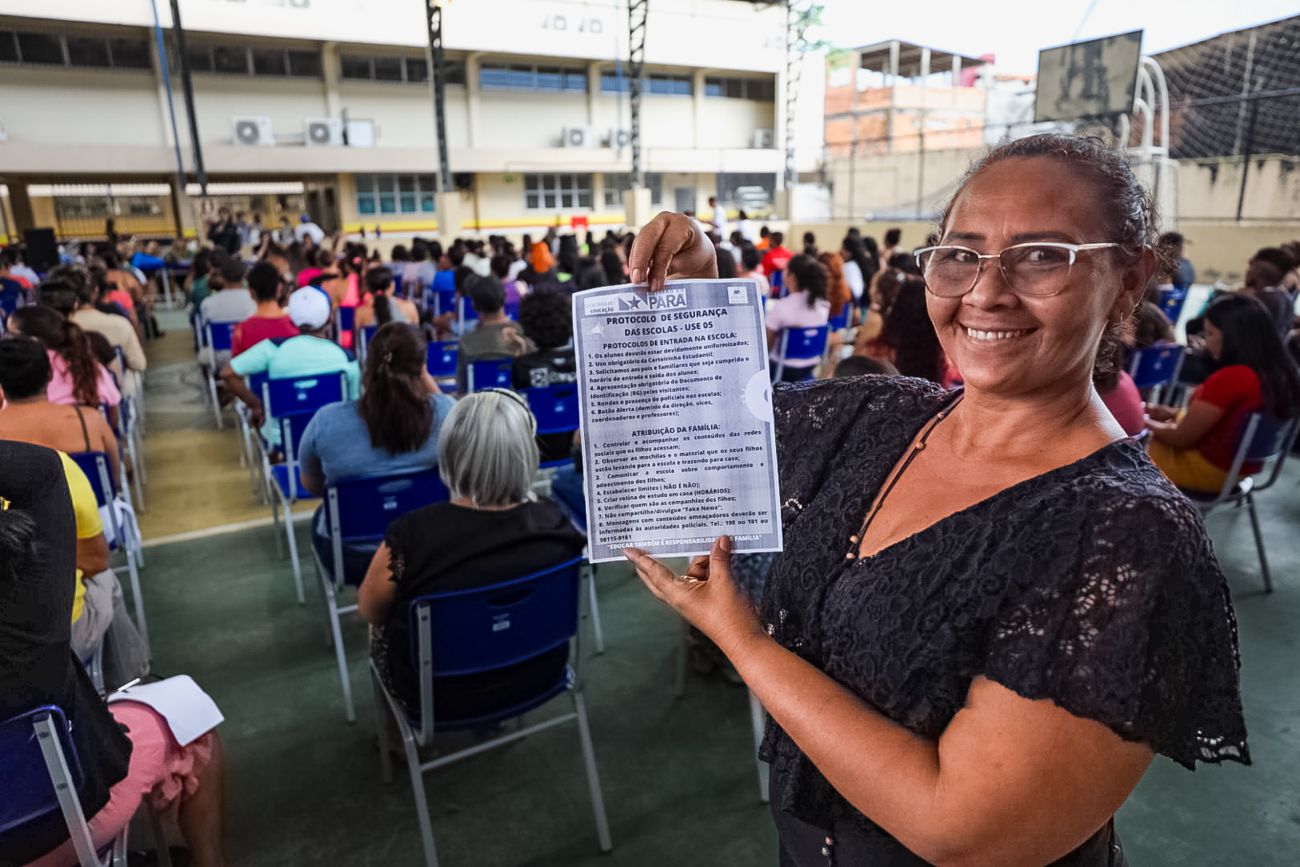 SECRETARIA DE EDUCAÇÃO
PARÁ
PROTOCOLO DE SEGURANÇA
DAS ESCOLAS - USE 05
PROTOCOLOS DE ENTRADA NA ESCOLA:
1. Os alunos deverão estar devidamente uniformizados;
2. Uso obrigatório da Carteirinha Estudantil;
3. Solicitamos aos pais e familiares que seja cumprido o
horário de entrada e saída dos alunos;
4. Apresentação obrigatória do Documento de
Identificação (RG) pelos visitantes;
5. Rondas e presença de policiais nas escolas;
6. Botão Alerta (domínio da direção, vices,
coordenadores e professores);
ATRIBUIÇÃO DA FAMÍLIA:
1. Controlar e acompanhar os conteúdos das redes
sociais que os filhos acessam;
2. Observar as mochilas e o material que os seus filhos
estão levando para a escola e trazendo para casa;
3. Comunicar a escola sobre comportamento e
adoecimento dos filhos;
4. Estabelecer limites ( NÃO É NÃO);
5. Criar rotina de estudo em casa (HORÁRIOS);
6. Verificar quem são as companhias dos filhos;
7. Não compartilhe/divulgue "Fake News";
8. Mensagens com conteúdos ameaçadores deverão ser
informadas às autoridades policiais. Tel.: 190 ou 181 ou
98115-9181
"EDUCAR TAMBÉM É RESPONSABILIDADE DA FAMÍLIA"